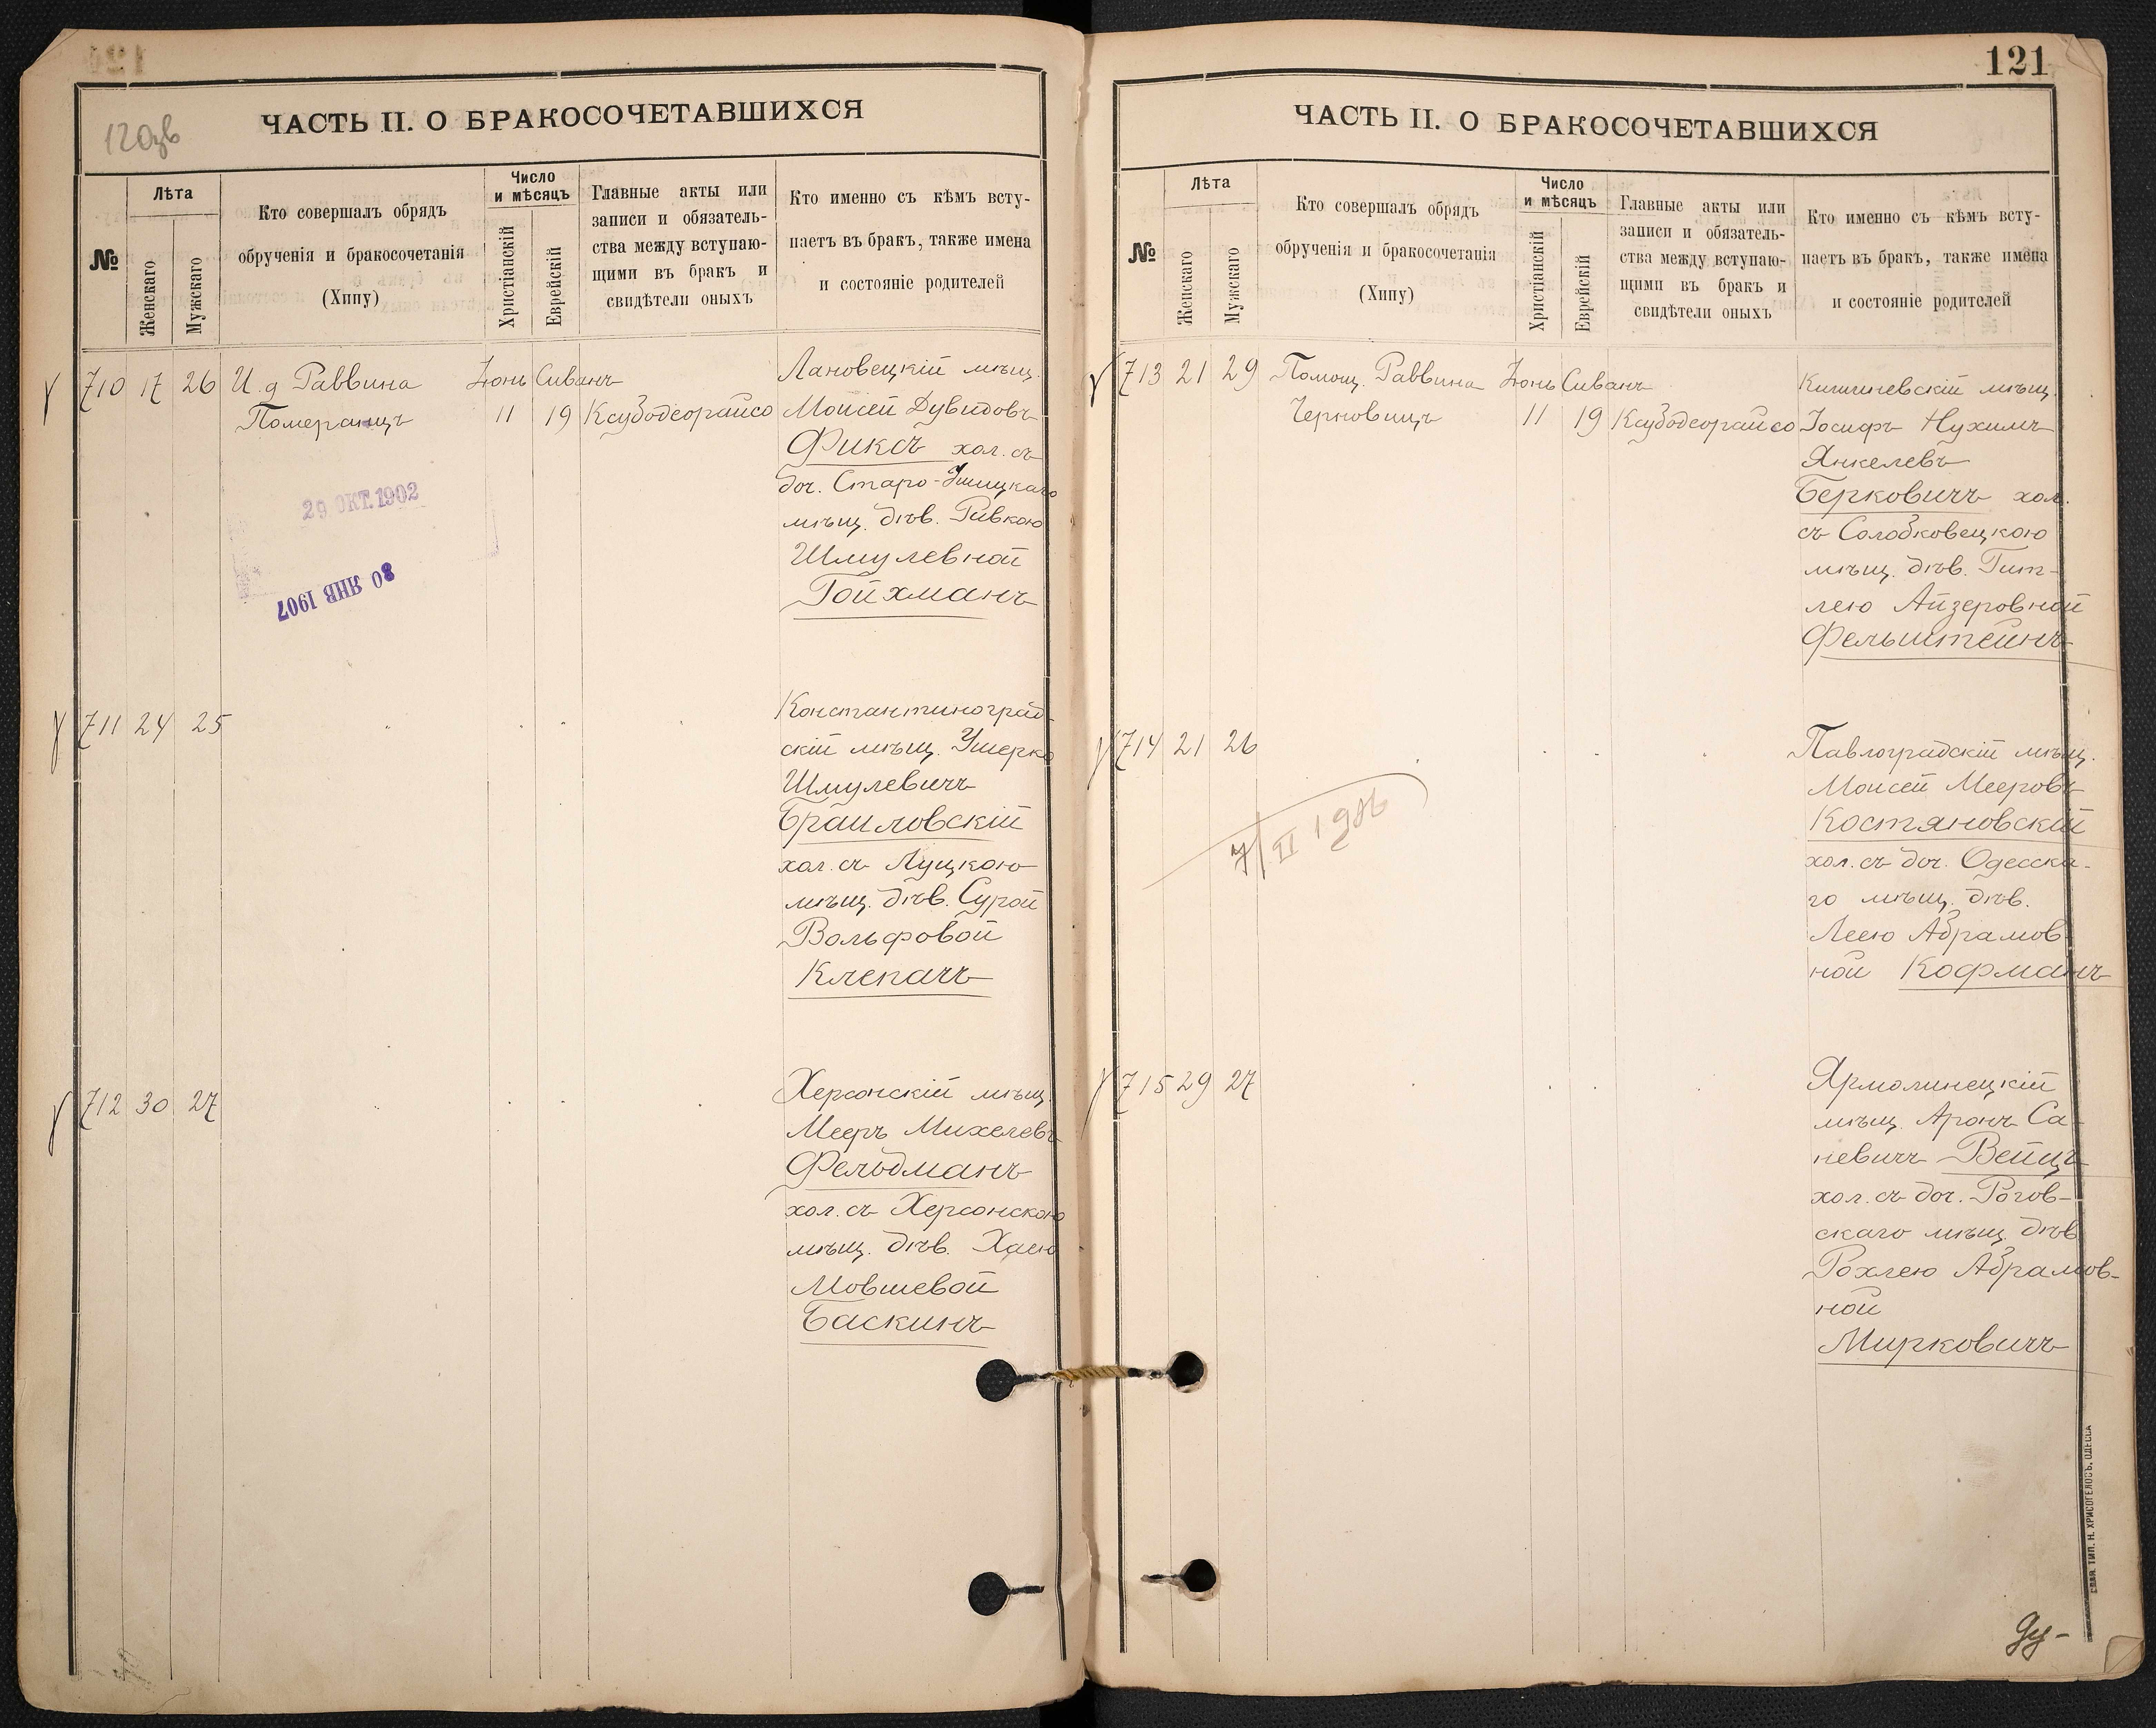 120зв
ЧАСТЬ II. О БРАКОСОЧЕТАВШИХСЯ
№
Лѣта
Женскаго
Мужскаго
Кто совершалъ обрядъ
обрученія и бракосочетанія
(Хипу)
Число
и мѣсяцъ
Христіанскій
Еврейскій
Главные акты или
записи и обязатель-
ства между вступаю-
щими въ бракъ и
свидѣтели оныхъ
Кто именно съ кѣмъ всту-
паетъ въ бракъ, также имена
и состояніе родителей
710 17 26 И. д Раввина Іюнь Сиванъ
Померанцъ 11 19 Ксубодеорайсо
Лановецкій мѣщ.
Моисей Дувидовъ
Фиксъ хол. съ
доч. Старо-Ушицкаго
мѣщ. дѣв. Ривкою
Шмулевной
Гойхманъ
29 ОКТ. 1902
30 ЯНВ 1907
711 24 25
Константиноград-
скій мѣщ. Ушерко
Шмулевичъ
Браиловскій
хол. съ Луцкою
мѣщ. дѣв. Сурой
Вольфовой
Клепачъ
712 30 27
Херсонскій мѣщ.
Мееръ Михелевъ
Фельдманъ
хол. съ Херсонскою
мѣщ. дѣв. Хаею
Мовшевой
Баскинъ
121
ЧАСТЬ II. О БРАКОСОЧЕТАВШИХСЯ
№
Лѣта
Женскаго
Мужскаго
Кто совершалъ обрядъ
обрученія и бракосочетанія
(Хипу)
Число
и мѣсяцъ
Христіанскій
Еврейскій
Главные акты или
записи и обязатель-
ства между вступаю-
щими въ бракъ и
свидѣтели оныхъ
Кто именно съ кѣмъ всту-
паетъ въ бракъ, также имена
и состояніе родителей
713 21 29 Помощ. Раввина Іюнь Сиванъ
Черновицъ 11 19 Ксубодеорайсо
Кишиневскій мѣщ.
Іосифъ Нухимъ
Янкелевъ
Берковичъ хол.
съ Солобковецкою
мѣщ. дѣв. Гит-
лею Айзеровной
Фельштейнъ
714 21 26
Павлоградскій мѣщ.
Моисей Мееровъ
Костяновскій
хол. съ доч. Одесска-
го мѣщ. дѣв.
Леею Абрамов
ной Кофманъ
7/II
715 29 27
Ярмолинецкій
мѣщ. Аронъ Са-
невичъ Вейцъ
хол. съ доч. Рогов-
скаго мѣщ. дѣв
Рохлею Абрамов-
ной
Мирковичъ
СЛАВ. ТИП. Н. ХРИСОГЕЛОСЪ, ОДЕССА